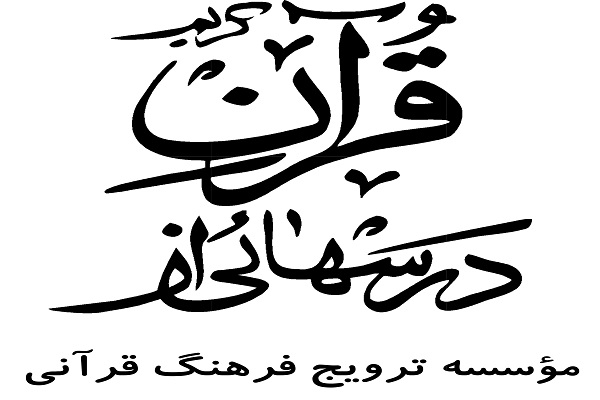 قرآن کریم
درسهائی از
مؤسسه ترویج فرهنگ قرآنی